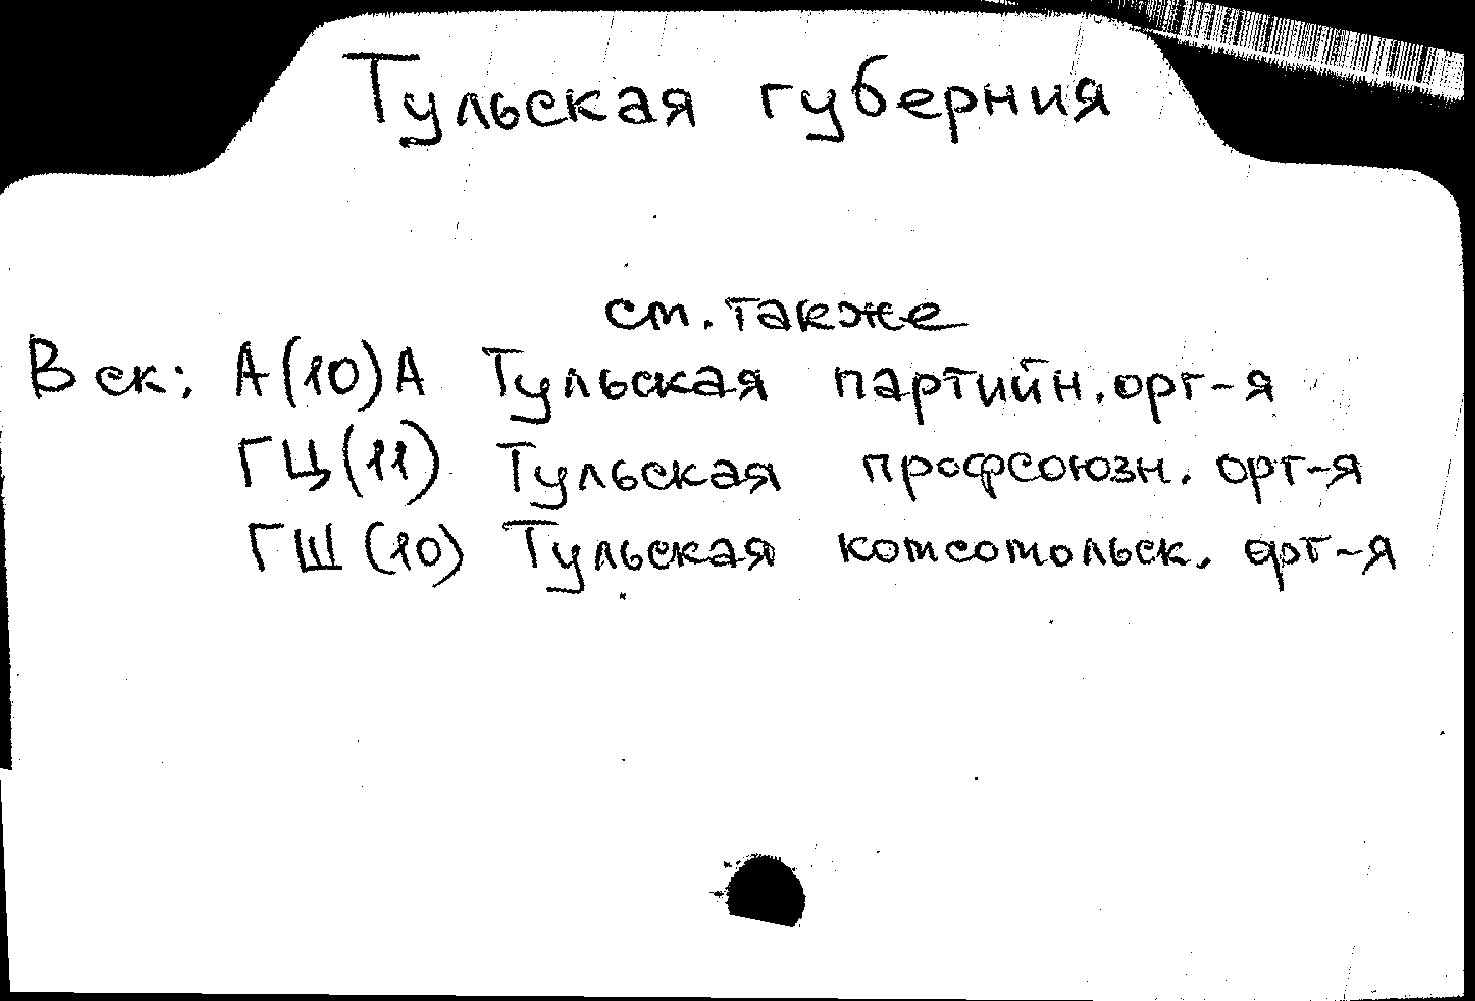 Тульская губерния
см. также
В ск: А(10)А Тульская партийн. орг-я
ГЦ(11) Тульская профсоюзн. орг-я
ГШ(10) Тульская комсомольск. орг-я